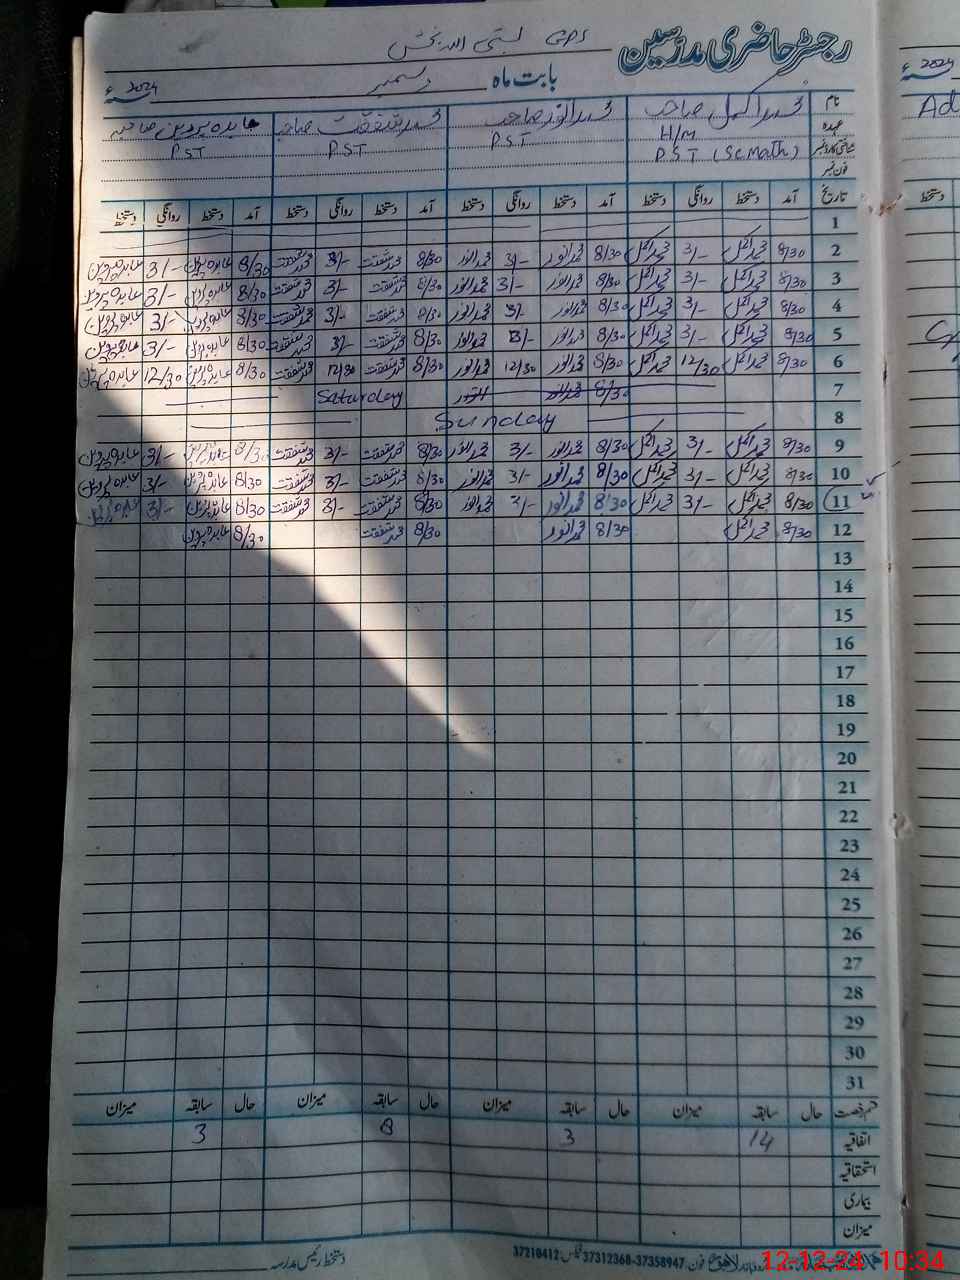 رجسٹر حاضری مدرسین GPS بستی اللہ بخش
بابت ماہ دسمبر 2024ء
2024ء
نام محمد اکمل صاحب محمد انور صاحب محمد شفقت صاحب عابدہ پروین صاحبہ
عہدہ H/M PST PST PST
PST (Sc Math)
فون نمبر
Ad
تاریخ آمد دستخط روانگی دستخط آمد دستخط روانگی دستخط آمد دستخط روانگی دستخط آمد دستخط روانگی دستخط
دستخط
1
2 8/30 محمد اکمل 3/- محمد اکمل 8/30 محمد انور 3/- محمد انور 8/30 محمد شفقت 3/- محمد شفقت 8/30 عابدہ پروین 3/- عابدہ پروین
3 8/30 محمد اکمل 3/- محمد اکمل 8/30 محمد انور 3/- محمد انور 8/30 محمد شفقت 3/- محمد شفقت 8/30 عابدہ پروین 3/- عابدہ پروین
4 8/30 محمد اکمل 3/- محمد اکمل 8/30 محمد انور 3/- محمد انور 8/30 محمد شفقت 3/- محمد شفقت 8/30 عابدہ پروین 3/- عابدہ پروین
5 8/30 محمد اکمل 3/- محمد اکمل 8/30 محمد انور 3/- محمد انور 8/30 محمد شفقت 3/- محمد شفقت 8/30 عابدہ پروین 3/- عابدہ پروین
6 8/30 محمد اکمل 12/30 محمد اکمل 8/30 محمد انور 12/30 محمد انور 8/30 محمد شفقت 12/30 محمد شفقت 8/30 عابدہ پروین 12/30 عابدہ پروین
7 8/30 محمد انور انور Saturday
8 Sunday
9 8/30 محمد اکمل 3/- محمد اکمل 8/30 محمد انور 3/- محمد انور 8/30 محمد شفقت 3/- محمد شفقت 8/30 عابدہ پروین 3/- عابدہ پروین
10 8/30 محمد اکمل 3/- محمد اکمل 8/30 محمد انور 3/- محمد انور 8/30 محمد شفقت 3/- محمد شفقت 8/30 عابدہ پروین 3/- عابدہ پروین
11 8/30 محمد اکمل 3/- محمد اکمل 8/30 محمد انور 3/- محمد انور 8/30 محمد شفقت 3/- محمد شفقت 8/30 عابدہ پروین 3/- عابدہ پروین
12 8/30 محمد اکمل 8/30 محمد انور 8/30 محمد شفقت 8/30 عابدہ پروین
13
14
15
16
17
18
19
20
21
22
23
24
25
26
27
28
29
30
31
قسم رخصت حال سابقہ میزان حال سابقہ میزان حال سابقہ میزان حال سابقہ میزان
اتفاقیہ 14 3 8 3
استحقاقیہ
بیماری
میزان
دستخط رئیس مدرسہ
لاہور فون: 37358947-37312368 فیکس: 37210412
12-12-24 10:34